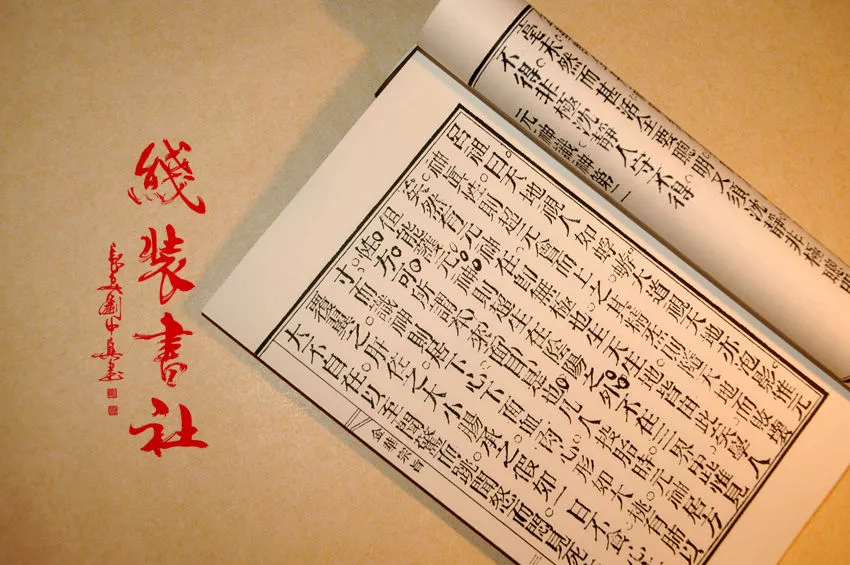 綫裝書社
然而甚活全要聰明又須沈靜非極聰明
不得非極沈靜人守不得
元神識神第二
呂祖曰。天地視人如蜉蝣。大道視天地亦泡影。惟元
神真性。則超元會而上之。其精氣則隨天地而敗
矣。然有元神在。即無極也。生天生地。皆由此矣。學人
但能護元神。則超生在陰陽之外。不在三界中。此惟見
性方可。所謂本來面目也。凡人投胎時。元神居方
寸。而識神則居下心。下面血肉心。形如大桃。有肺以
覆翼之。肝佐之。大小腸承之。假如一日不食。心
大不自在。以至聞驚而跳。聞怒而悶。見死
金華宗旨